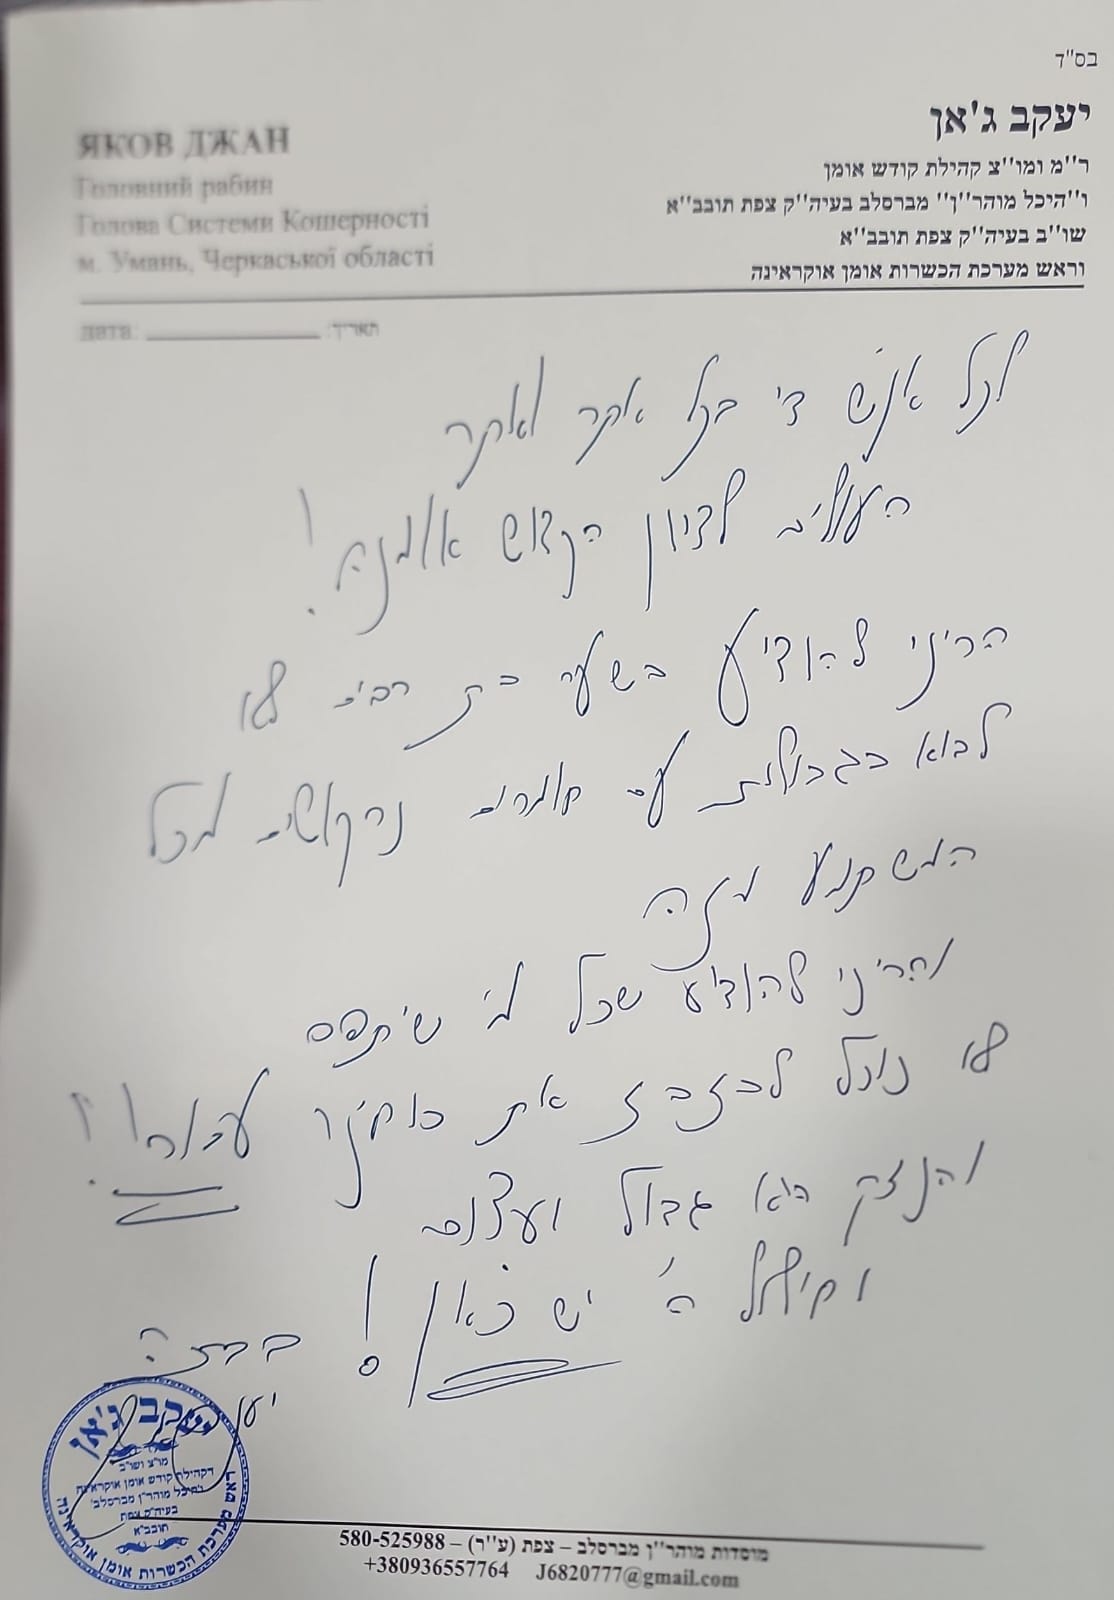 בס"ד
יעקב ג'אן
ר''מ ומו''צ קהילת קודש אומן
ו''היכל מוהר''ן'' מברסלב בעיה''ק צפת תובב''א
שו''ב בעיה''ק צפת תובב''א
וראש מערכת הכשרות אומן אוקראינה
ЯКОВ ДЖАН
Головний рабин
Голова Системи Кошерності
м. Умань, Черкаської області
дата: תאריך:
לכל אנ"ש די בכל אתר ואתר
העולים לציון הקדוש אומנה!
הריני להודיע בשער בת רבים לא
לבוא בגבולות עם חומרים נרקוטים מכל
המשתמע מזה
והריני להודיע שכל מי שיתפס
לא נוכל לבזבז את כוחינו עבורו!!
והנזק הוא גדול ועצום
וחילול ה' יש כאן!
ברכה
יעקב ג'אן
מו"צ ושו"ב
דקהילת קודש אומן אוקראינה
והיכל מוהר"ן מברסלב
בעיה"ק צפת
תובב"א
ראש מערכת הכשרות אומן אוקראינה
מוסדות מוהר''ן מברסלב – צפת (ע''ר) – 580-525988
+380936557764 J6820777@gmail.com